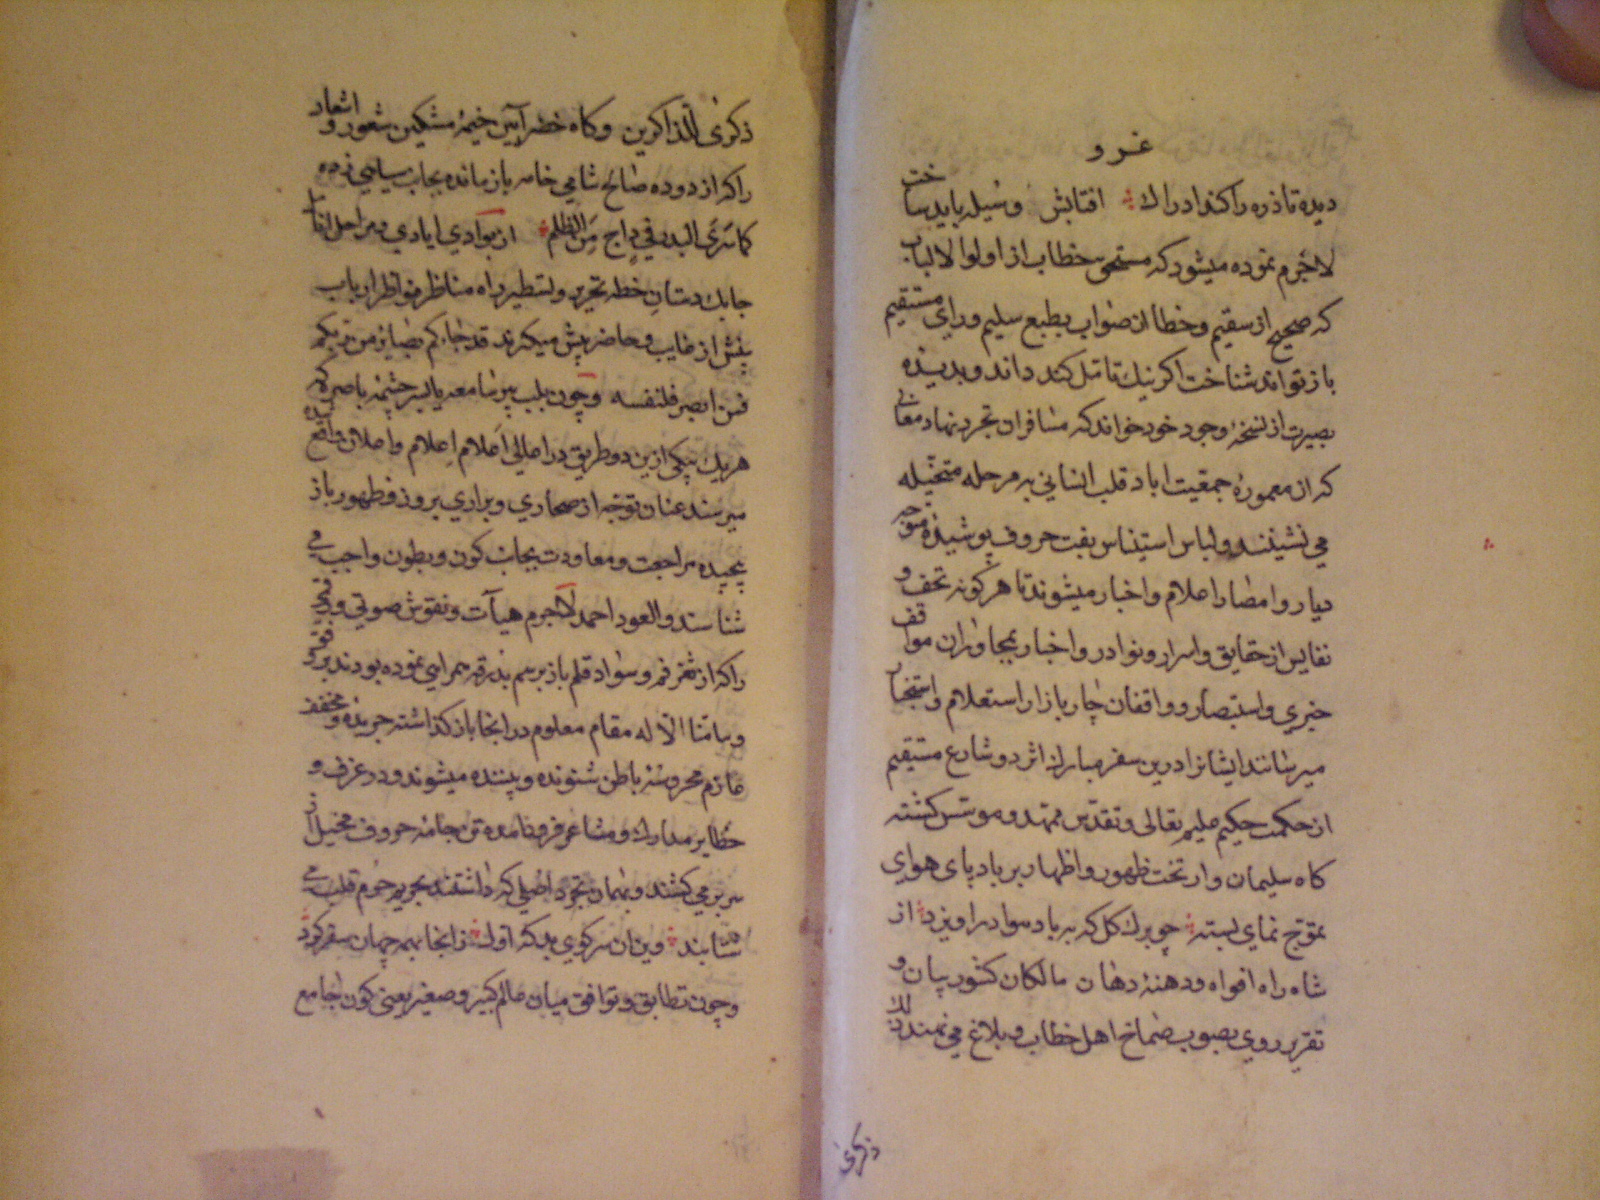 غرو
دیده تا ذره را کند ادراک افتابش وسیله باید ساخت
لاجرم نموده میشود که مستحق خطاب از اولوا الالباب
که صحیح از سقیم و خطا از صواب بطبع سلیم و رای مستقیم
باز تواند شناخت اکر نیک تامل کند داند و بدیده
بصیرت از نسخهٔ وجود خود خواند که مسافران تجرد نهاد معانی
که از معمورهٔ جمعیت اباد قلب انسانی به مرحله متخیله
می نشینند و لباس استیناس بفت حروف پوشیده متوجه
دیار و امصار اعلام و اخبار میشوند تا هر کونه تحف و
نفایس از حقایق و اسرار و نوادر و اخبار بمجاوران مواقف
خبری و استبصار و واقفان چار بازار استعلام و استخبار
میرسانند ایشانرا درین سفر مبارک اثر دو شارع مستقیم
از حکمت حکیم علیم تعالی و تقدس ممهد و موسس کشته
کاه سلیمان وار تخت ظهور و اظهار بر باد پای هوای
تموج نمای بسته چو برک کل که به باد سوار در اویزد از
شاه راه افواه و دهنهٔ دهان مالکان کشور بیان و
تقریر روی بصوب صماخ اهل خطاب و بلاغ می نهند ذلک
ذکری
ذکری للذاکرین و کاه خضر آیین خیمهٔ مشکین شعور و اشعار
را که از دوده صالح شامی خامه باز مانده بجانب سیاهی زده
کما سری البدر فی داج من الظلم از بوادی ایادی و مراحل انامل
جابک دستان خطه تحریر و تسطیر راه مناظر نواظر ارباب
بینش از غایب و حاضر پیش میکرند قد جاءکم بصایر من ربکم
فمن ابصر فلنفسه و چون بلب بیر سامعه یا بسر چشمهٔ باصره که
هر یک بیکی ازین دو طریق در اعالی اعلام اعلام و اعلان واقع
میرسند عنان توجه از صحاری و براری بروز و ظهور باز
پیچیده مراجعت و معاودت بجانب کون و بطون واجب می
شناسند و العود احمد لاجرم هیآت و نقوش صوتی و رقمی
را که از ثغر فم و سواد قلم باز برسم بدرقه همراهی نموده بودند
و ما منا الا له مقام معلوم در انجا باز کذاشته جریده و مخفف
عازم محروسهٔ باطن شنونده و بیننده میشوند و در غرف و
حظایر مدارک و مشاعر فرود آمده تن جامهٔ حروف مخیل از
سر بر می کشند و بهمان تجرد اصلی که داشتند بحریم حرم قلب می
شتابند وین ان سر کوی بد که اول زانجا بهمه جهان سفر کرد
و چون تطابق و توافق میان عالم کبیر و صغیر یعنی کون جامع